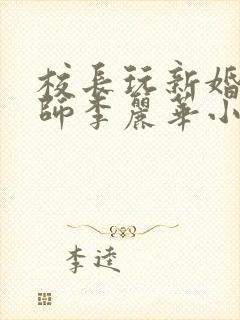 校長玩新婚
師李麗華小
李逵